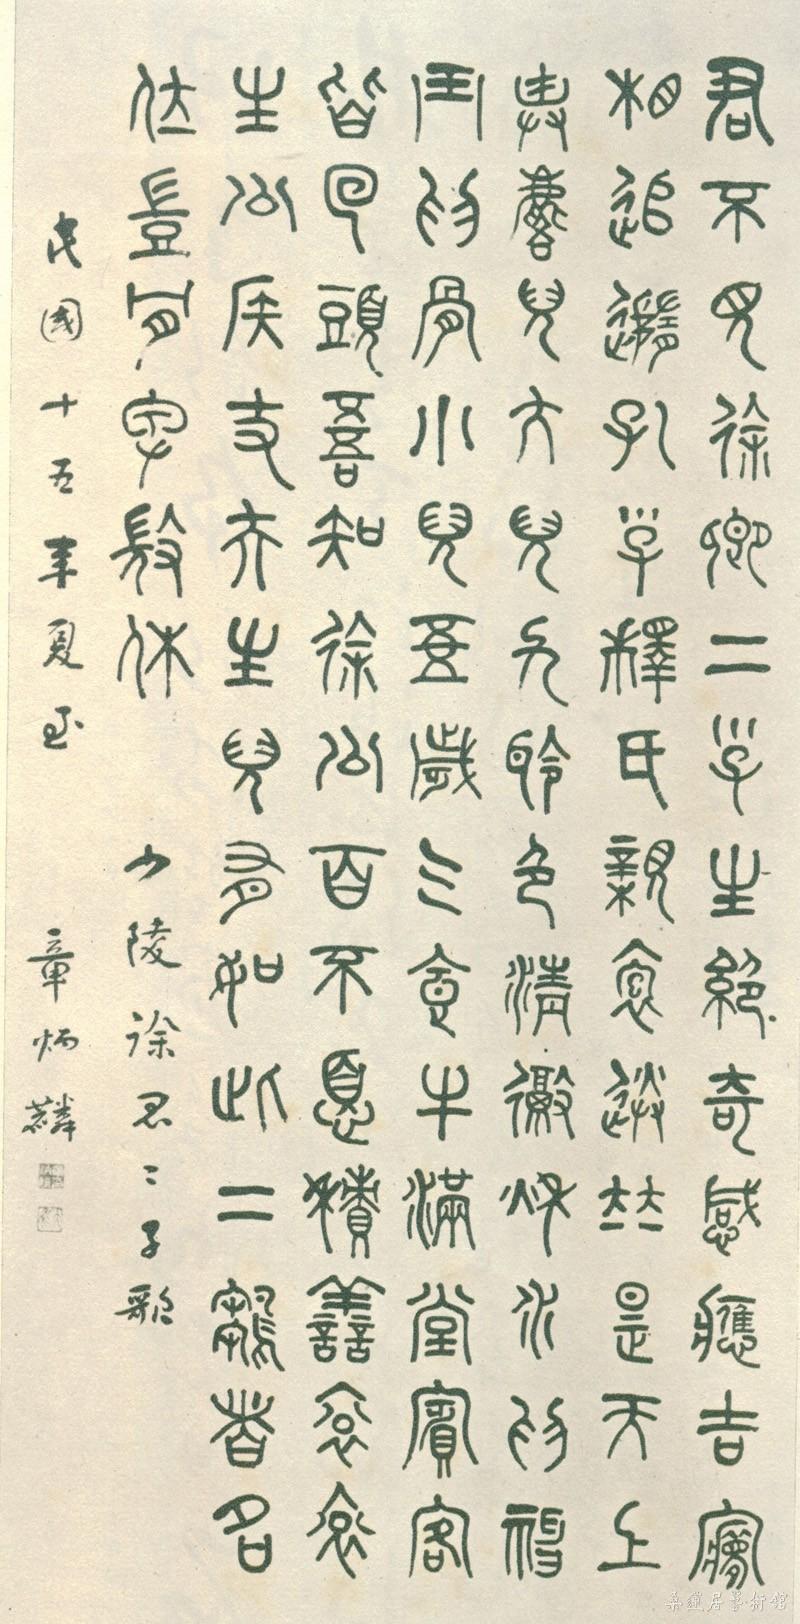 君不見徐卿二子生絕奇感應吉夢
相追隨孔子釋氏親抱送並是天上
麒麐兒大兒九齡色清徹秋水為神
玉為骨小兒五歲气食牛滿堂賓客
皆回頭吾知徐公百不憂積善袞袞
生公侯丈夫生兒有如此二雛者名
位豈肎卑微休 少陵徐君二子歌
民國十五年夏至 章炳麟
桑蓮居藝術館